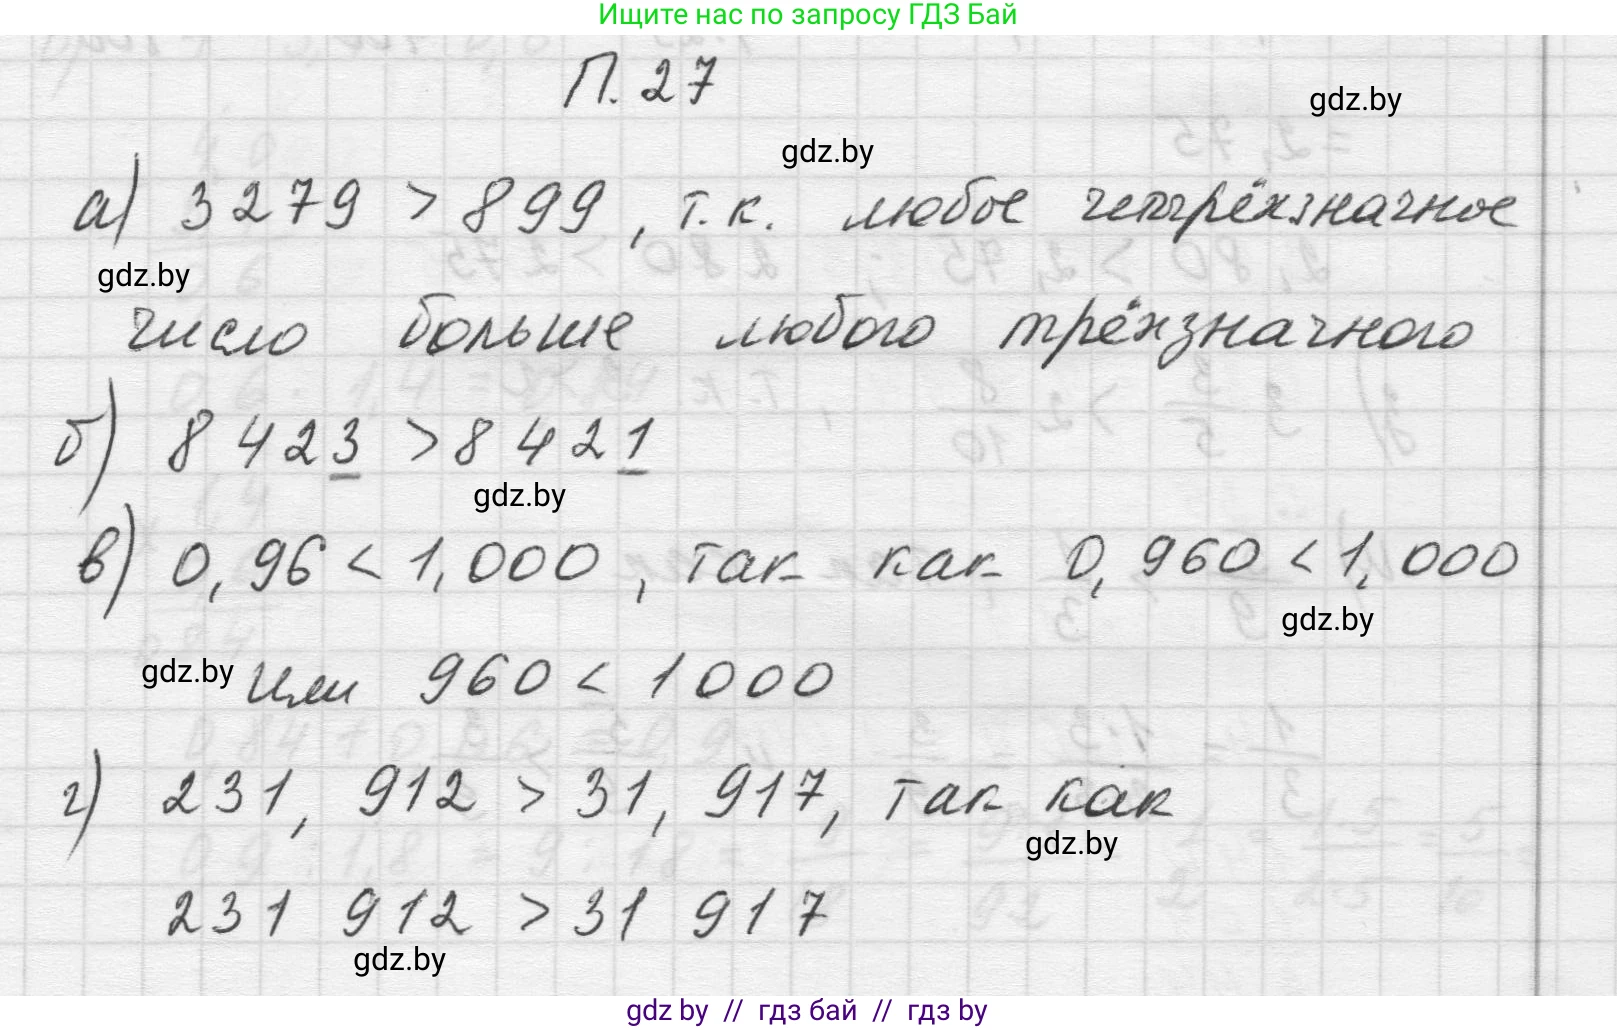 Ищите нас по запросу ГДЗ Бай
П. 27
gdz.by
gdz.by
а) 3279 > 899, т.к. любое четырёхзначное
gdz.by
число больше любого трёхзначного
б) 8423 > 8421
gdz.by
в) 0,96 < 1,000, так как 0,960 < 1,000
gdz.by
gdz.by
или 960 < 1000
г) 231,912 > 31,917, так как
gdz.by
231 912 > 31 917
gdz.by
gdz by // гдз бай // гдз by